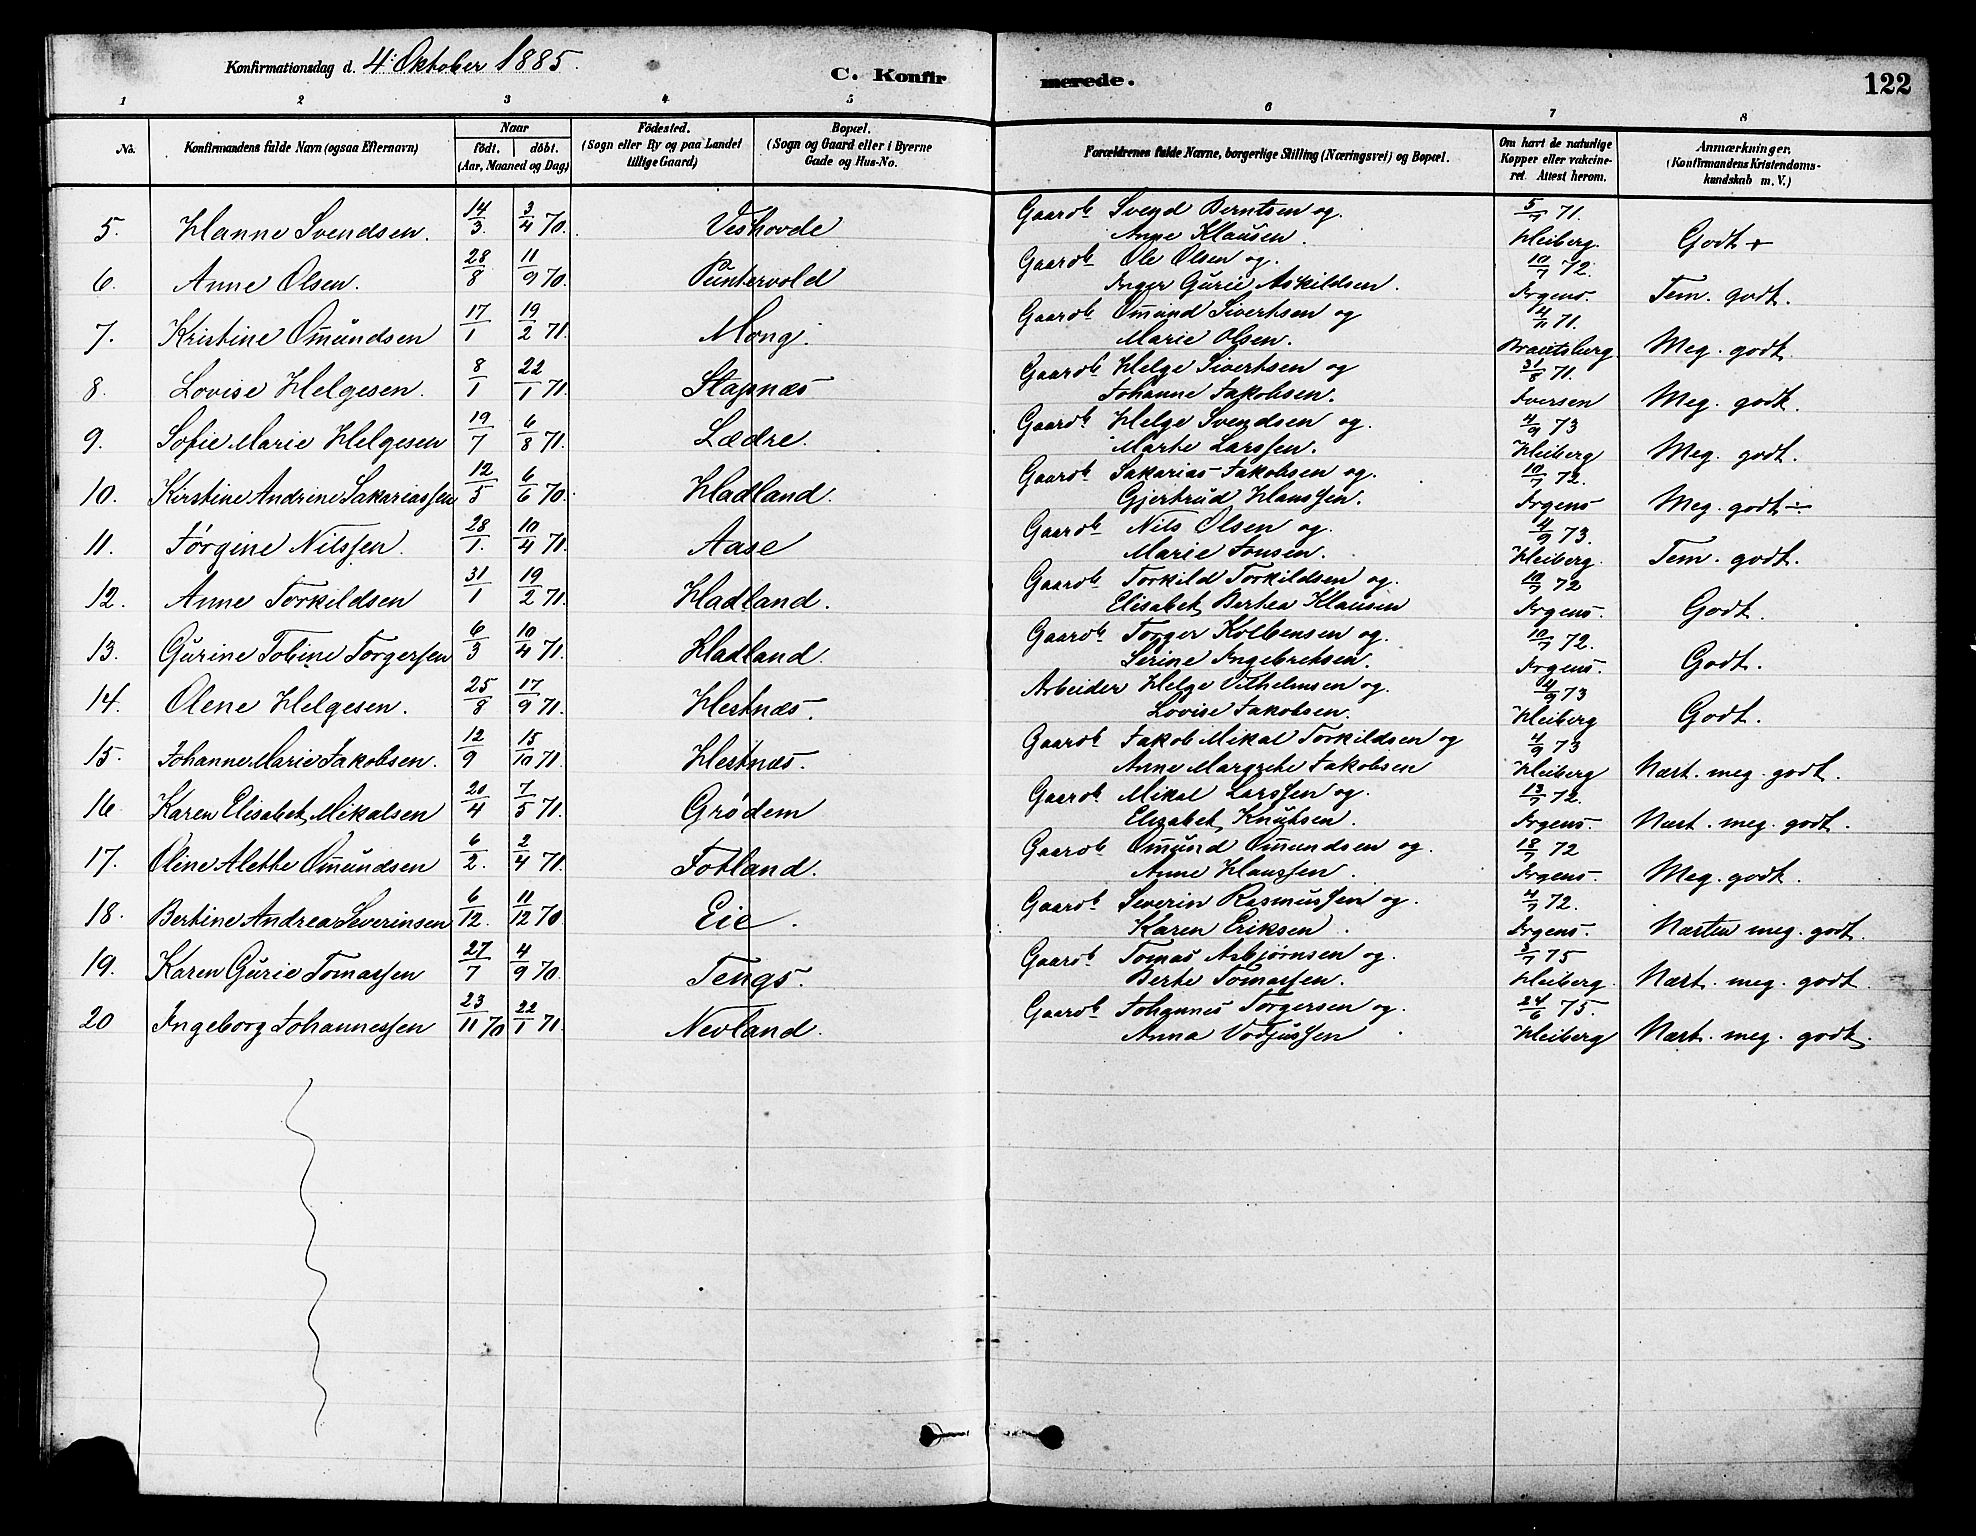 Konfirmationsdag d. 4. Oktober 1885.
C. Konfirmerede.
122
1 2 3 4 5 6 7 8
No. Konfirmandens fulde Navn (ogsaa Efternavn) Naar födt. döbt. (Aar, Maaned og Dag) Födested. (Sogn eller By og paa Landet tillige Gaard) Bopæl. (Sogn og Gaard eller i Byerne Gade og Hus-No.) Forældrenes fulde Navne, borgerlige Stilling (Næringsvei) og Bopæl. Om havt de naturlige Kopper eller vakcineret. Attest herom. Anmærkninger. (Konfirmandens Kristendomskundskab m. V.)
5. Hanne Svendsen. 14/3. 3/4 70. Veshovde Gaardb. Svend Berntsen og Anne Klausen. 5/7 71. Heiberg. Godt +
6. Anne Olsen. 28/8 11/9 70. Puntervold Gaardb. Ole Olsen og Inger Gurie Askildsen. 10/7 72. Irgens. Tem. godt.
7. Kristine Omundsen 17/1 19/2 71. Mong. Gaardb. Omund Sivertsen og Marie Olsen. 4/11 71. Brautsberg Meg. godt.
8. Lovise Helgesen. 8/1 22/1 71. Stapnæs Gaardb. Helge Sivertsen og Johanne Jakobsen. 31/8 71. Iversen Meg. godt.
9. Sofie Marie Helgesen 19/7 6/8 71. Lædre. Gaardb. Helge Svendsen og Marte Larssen. 4/9 73 Heiberg Meg. godt.
10. Kirstine Andrine Sakariassen 12/5 6/6 70. Hadland. Gaardb. Sakarias Jakobsen og Gjertrud Hanssen. 10/7 72. Irgens Meg. godt ÷
11. Jørgine Nilssen. 28/1. 10/4 71. Aase Gaardb. Nils Olsen og Marie Jonsen. 4/9 73. Heiberg. Tem. godt.
12. Anne Torkildsen 31/1 19/2 71. Hadland. Gaardb. Torkild Torkildsen og Elisabet Bertea Klausen 10/7 72 Irgens. Godt.
13. Gurine Tobine Torgersen 6/3 10/4 71. Hadland. Gaardb. Torger Kolbensen og Serine Ingebretsen. 10/7 72. Irgens. Godt.
14. Olene Helgesen. 25/8 17/9 71. Hestnæs. Arbeider Helge Vilhelmsen og Lovise Jakobsen. 4/9 73 Heiberg Godt.
15. Johanne Marie Jakobsen. 12/9 15/10 71. Hestnæs. Gaardb. Jakob Mikal Torkildsen og Anne Margrete Jakobsen 4/9 73 Heiberg Næst. meg. godt.
16 Karen Elisabet Mikalsen 20/4 7/5 71. Grødem Gaardb. Mikal Larssen og Elisabet Knutsen. 13/7 72. Irgens. Næst. meg. godt.
17. Oline Alette Omundsen 6/2. 2/4 71. Fotland. Gaardb. Omund Omundsen og Anne Hanssen. 18/7 72 Irgens. Meg. godt.
18. Bertine Andrea Severinsen 6/12. 11/12 70. Eie. Gaardb. Severin Rasmussen og Karen Eriksen. 4/7 72. Irgens. Næsten meg. godt.
19. Karen Gurie Tomassen 27/7 4/9 70. Tengs. Gaardb. Tomas Asbjørnsen og Berte Tomassen. 3/7 75 Heiberg. Næst. meg. godt.
20 Ingeborg Johannessen 23/11 70 22/1 71. Nevland. Gaardb. Johannes Torgersen og Anna 24/6 75. Heiberg Næst. meg. godt.